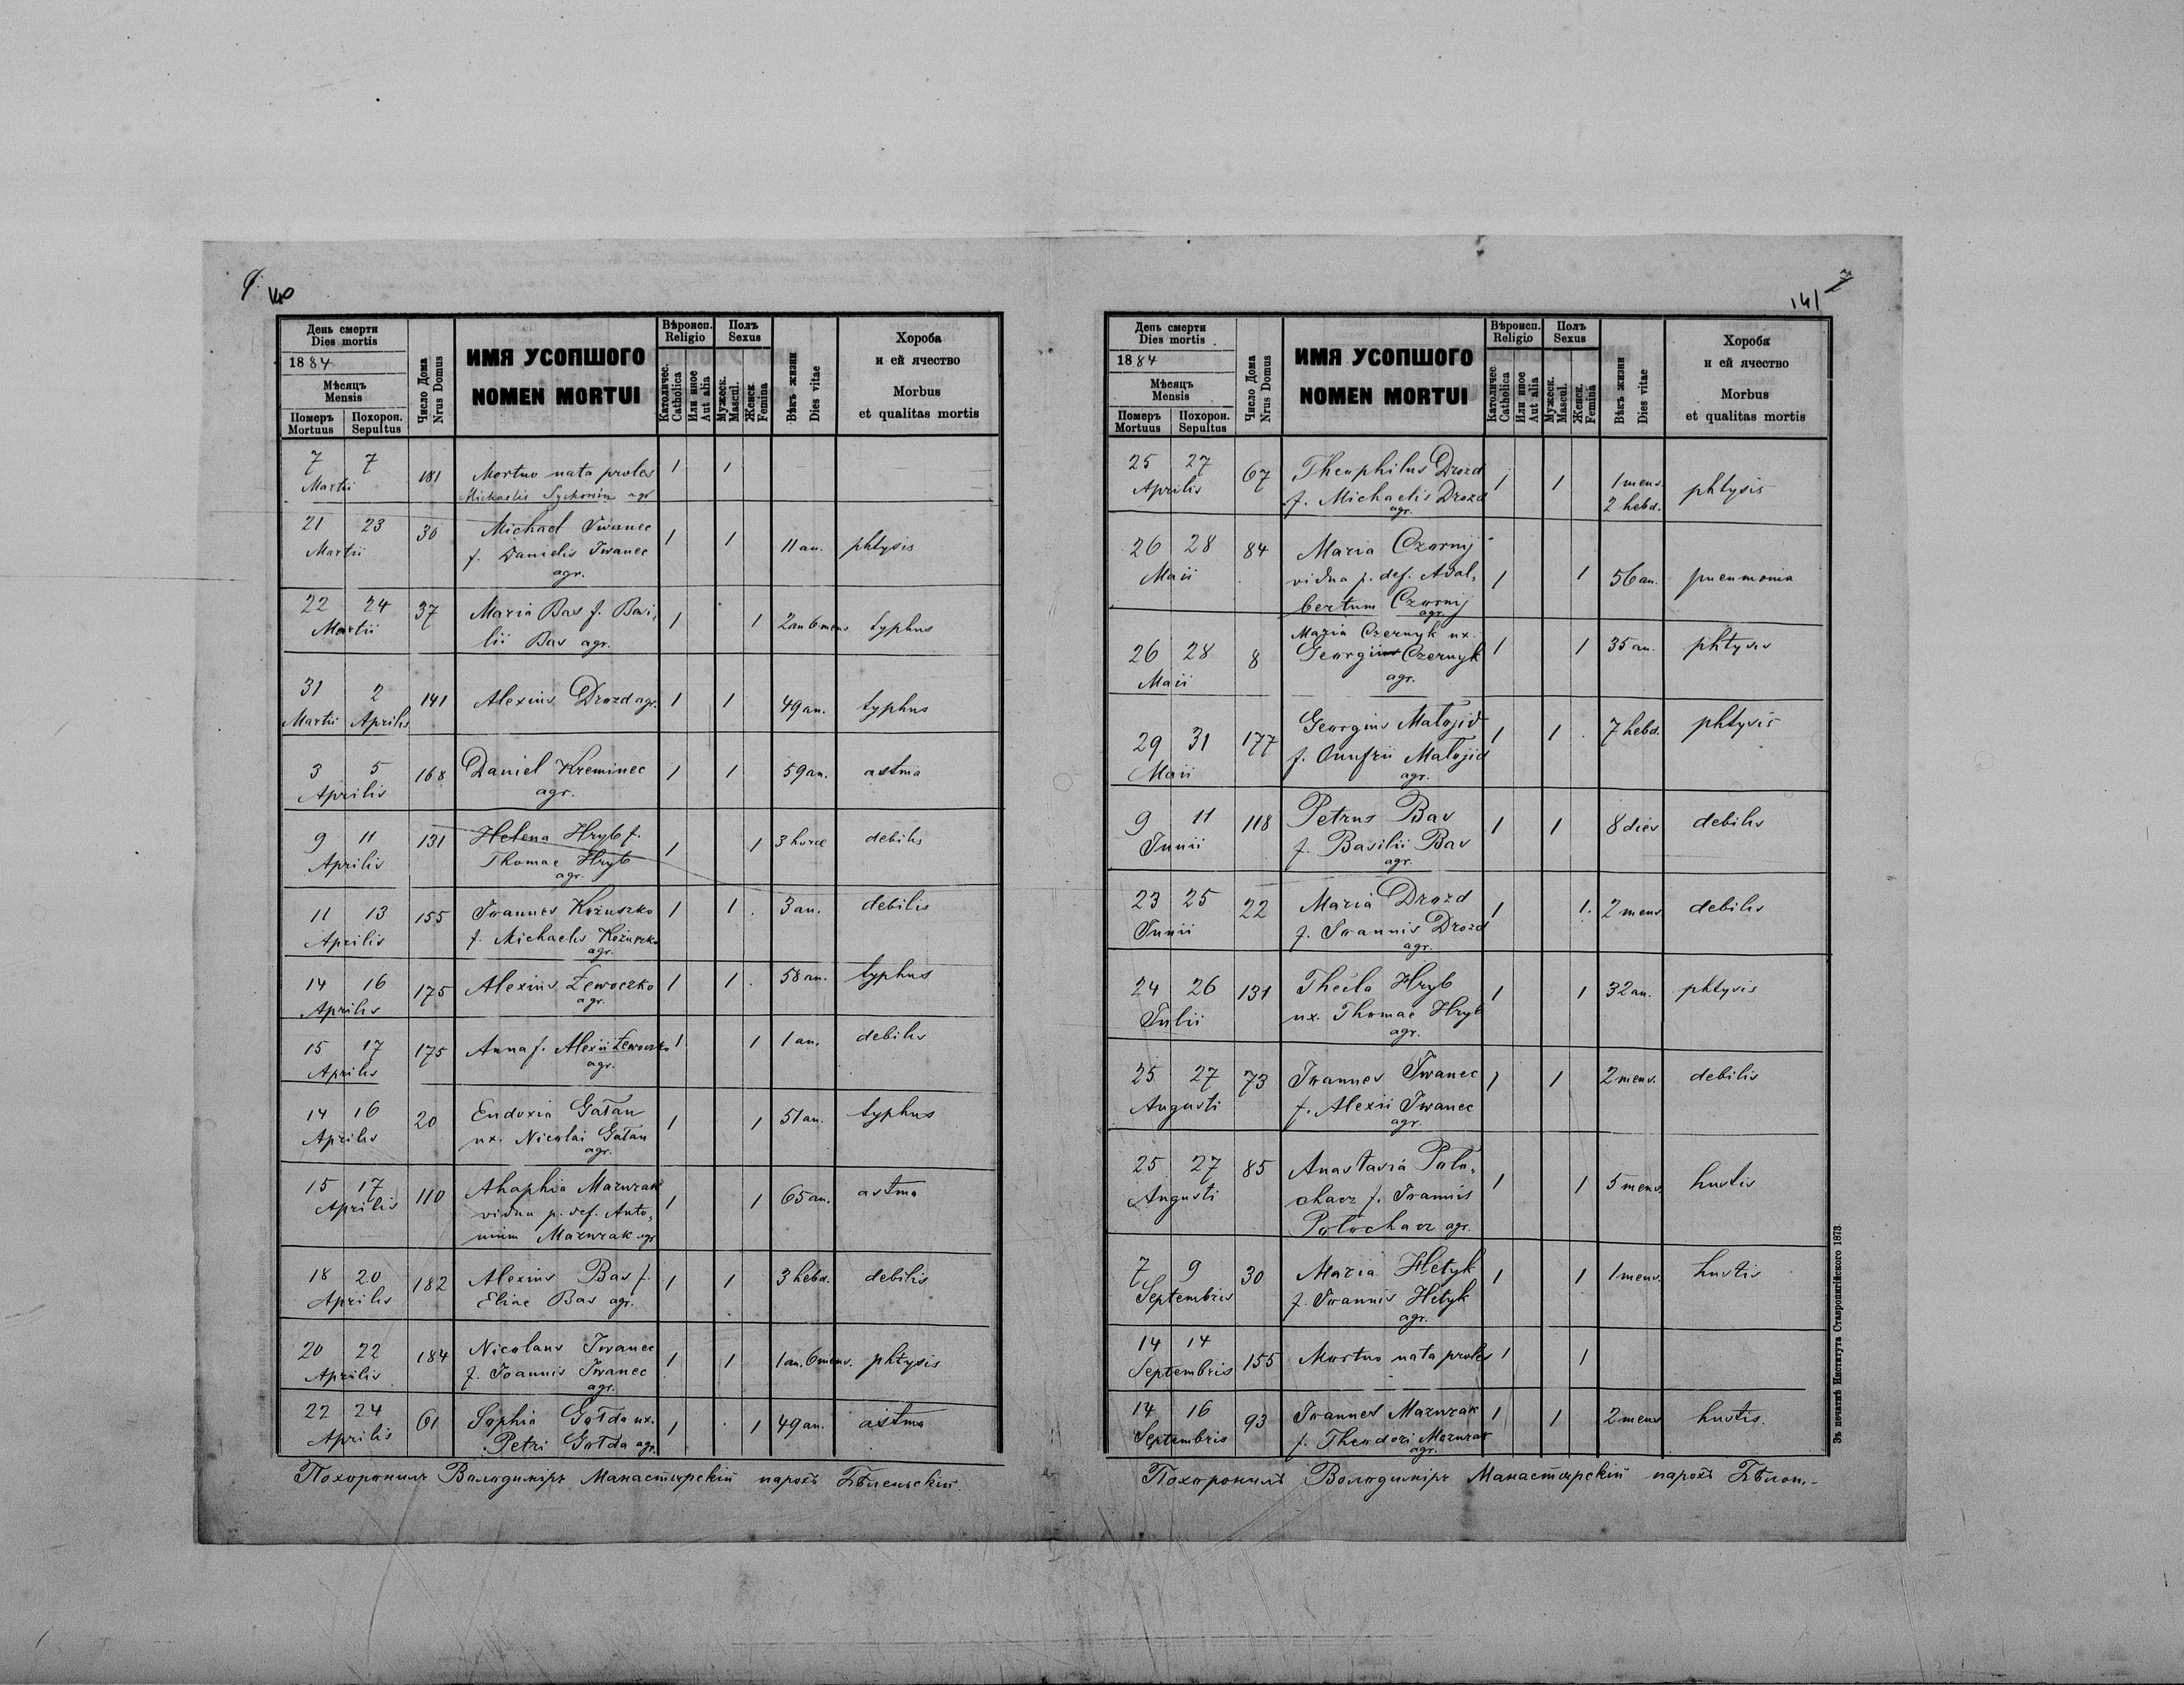 140
День смерти
Dies mortis
1884
Мѣсяцъ
Mensis
Померъ Похорон.
Mortuus Sepultus
Число Дома
Nrus Domus
ИМЯ УСОПШОГО
NOMEN MORTUI
Вѣроисп.
Religio
Католичес.
Catholica
Или иное
Aut alia
Полъ
Sexus
Мужеск.
Mascul.
Женск.
Femina
Вѣкъ жизни
Dies vitae
Хороба
и ей ячество
Morbus
et qualitas mortis
7 7 181 Mortuo nata proles 1 1
Martii Michaelis agr
21 23 30 Michael Iwanec 1 1 11 an. phtysis
Martii f. Danielis Iwanec
agr.
22 24 37 Maria Bas f. Basi, 1 1 2 an 6 mens typhus
Martii lii Bas agr.
31 2 141 Alexius Drozd agr. 1 1 49 an. typhus
Martii Aprilis
3 5 168 Daniel Kreminec 1 1 59 an. astma
Aprilis agr.
9 11 131 Helena Hryb f. 1 1 3 horae debilis
Aprilis Thomae Hryb
agr.
11 13 155 Ioannes Kożuszko 1 1 3 an. debilis
Aprilis f. Michaelis Kożuszko
agr.
14 16 175 Alexius Lewoczko 1 1 58 an. typhus
Aprilis agr.
15 17 175 Anna f. Alexii Lewoczko 1 1 1 an. debilis
Aprilis agr.
14 16 20 Eudoxia Gałan 1 1 51 an. typhus
Aprilis ux. Nicolai Gałan
agr.
15 17 110 Ahaphia Mazurak 1 1 65 an. astma
Aprilis vidua p. def. Anto,
nium Mazurak agr
18 20 182 Alexius Bas f. 1 1 3 hebd. debilis
Aprilis Eliae Bas agr.
20 22 184 Nicolaus Iwanec 1 1 1 an. 6 mens. phtysis
Aprilis f. Ioannis Iwanec
agr.
22 24 61 Sophia Gołda ux. 1 1 49 an. astma
Aprilis Petri Gołda agr.
Похоронилъ Володимірь Манастырскій парохъ
141
День смерти
Dies mortis
1884
Мѣсяцъ
Mensis
Померъ Похорон.
Mortuus Sepultus
Число Дома
Nrus Domus
ИМЯ УСОПШОГО
NOMEN MORTUI
Вѣроисп.
Religio
Католичес
Catholica
Или иное
Aut alia
Полъ
Sexus
Мужеск.
Mascul.
Женск.
Femina
Вѣкъ жизни
Dies vitae
Хороба
и ей ячество
Morbus
et qualitas mortis
25 27 67 Theophilus Drozd 1 1 1 mens. phtysis
Aprilis f. Michaelis Drozd 2 hebd.
agr.
26 28 84 Maria Czornij 1 1 56 an. pneumonia
Maii vidua p. def. Adal,
bertum Czornij
agr.
26 28 8 Maria Czernyk ux. 1 1 35 an. phtysis
Maii Georgius Czernyk
agr.
29 31 177 Georgius Małojid 1 1 7 hebd. phtysis
Maii f. Onufrii Małojid
agr.
9 11 118 Petrus Bas 1 1 8 dies debilis
Junii f. Basilii Bas
agr.
23 25 22 Maria Drozd 1 1 2 mens debilis
Junii f. Ioannis Drozd
agr.
24 26 131 Thecla Hryb 1 1 32 an. phtysis
Julii ux. Thomae Hryb
agr.
25 27 73 Ioannes Iwanec 1 1 2 mens. debilis
Augusti f. Alexii Iwanec
agr.
25 27 85 Anastasia Poło, 1 1 5 mens. hustis
Augusti chacz f. Ioannis
Połochacz agr.
7 9 30 Maria Hetyk 1 1 1 mens. hustis
Septembris f. Ioannis Hetyk
agr.
14 14 155 Mortuo nata proles 1 1
Septembris
14 16 93 Ioannes Mazurak 1 1 2 mens hustis.
Septembris f. Theodori Mazurak
agr.
Похоронилъ Володимірь Манастырскій парохъ
Зъ печатнѣ Института Ставропигійского 1873